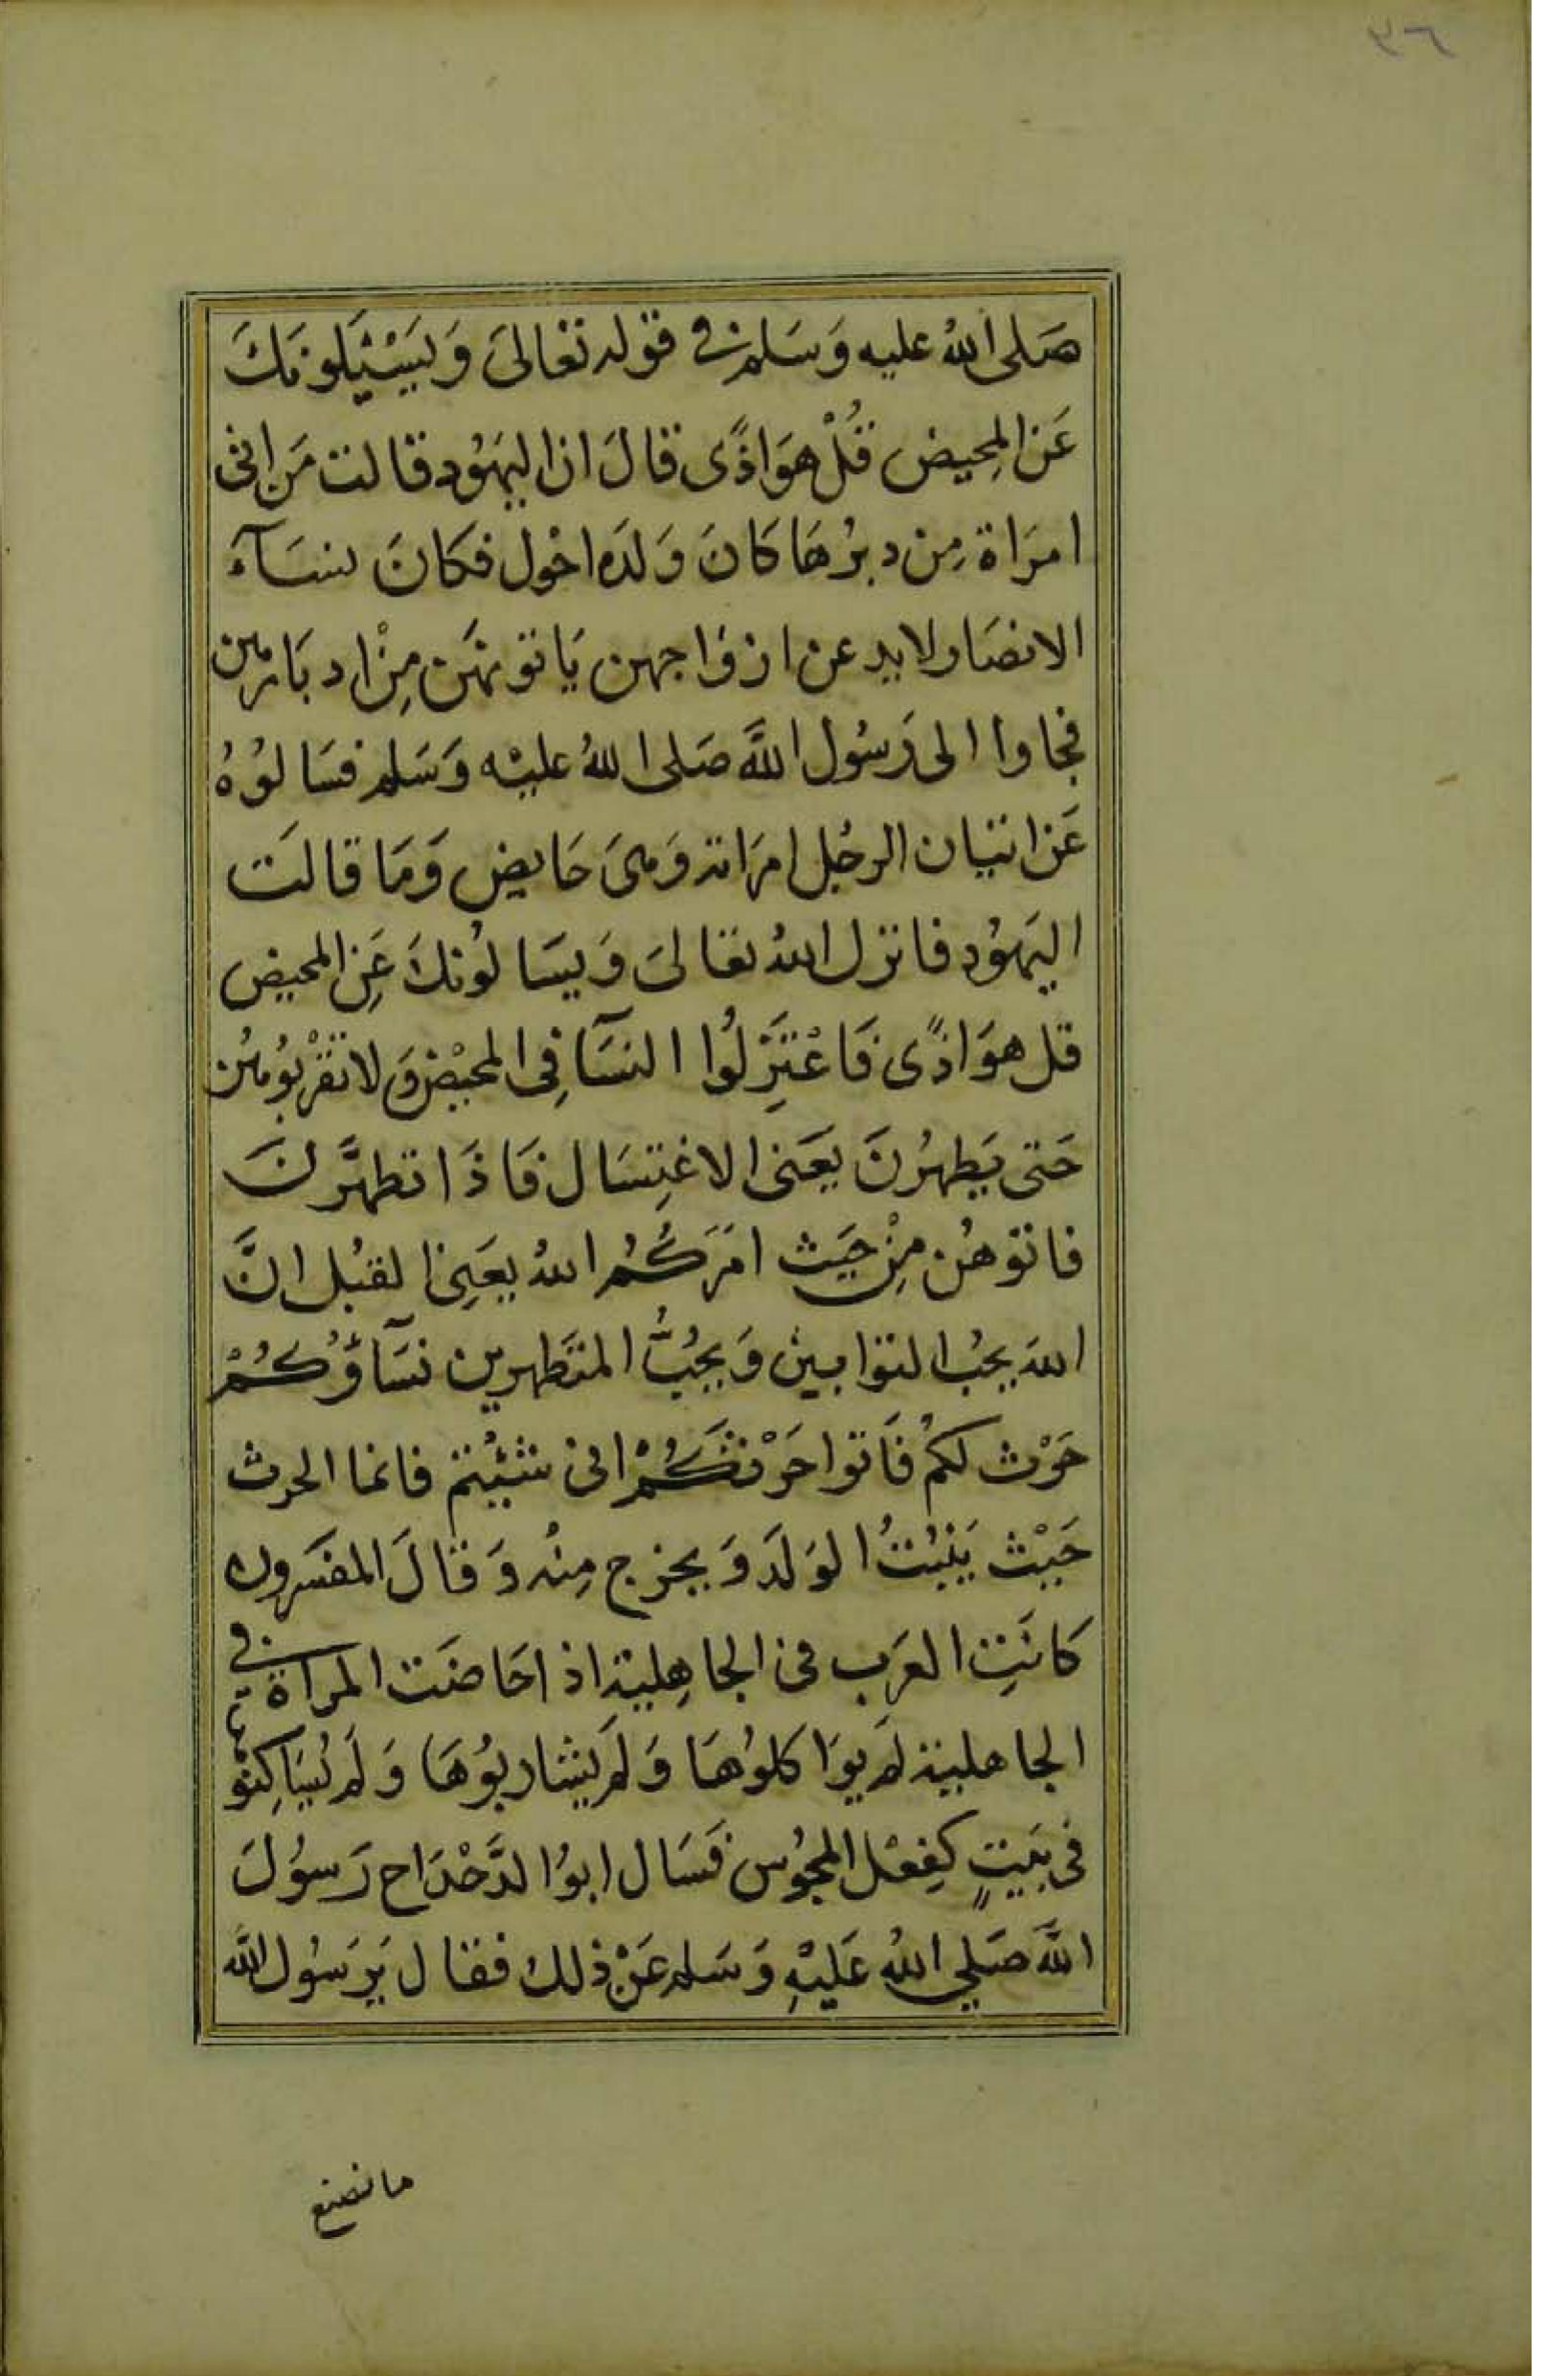 ٣٦
صَلى اللهُ عليه وَسَلم في قوله تعَالىَ وَيَسْئَلونَكَ
عَن المحِيض قُلْ هوَ اذًى قالَ ان اليهَوُد قالت مَن اتى
امرَاة مِن دبرُهَا كانَ وَلدَه احْول فكانَ نسَآءَ
الانصَار لا يدعن ازوَاجهن يَاتونهَن مِنْ ادبَارهن
فجاوا الى رَسُول اللهَّ صَلى اللهُ عليْه وَسَلم فسَالوُهُ
عَن اتيان الرجُل امرَاته وَهىَ حَايض وَمَا قالَت
اليَهوُد فانزل اللهُ تعَالىَ وَيسَالوُنكَ عَنِ المحيض
قل هوَ اذًى فَاعْتَزِلُوا النسَآ فِى المحيْض وَلا تقْرَبُوهُن
حَتى يَطهرُنَ يعَنى الاغتِسَال فَاذَا تطهرَّنَ
فاتوهُن مِنْ حَيَث امَرَكُمُ اللهُ يعَنِى القبُل انَّ
اللهَ يحُب التوابين وَيحُبُّ المتَطهرين نسَآؤُكُمْ
حَرْث لكمُ فَاتوا حَرْثَكُمْ انى شئْتم فانما الحرث
حَيْث يَنبُتُ الوَلدَ وَيخرج مِنهُ وَقالَ المفسَرون
كانَتِ العرَب فى الجاهِلية اذا حَاضَت المراة في
الجاهلية لَم يوَاكلوُهَا وَلَم يشاربُوهَا وَلَم يُسَاكِنوْها
فى بَيتٍ كفِعْل المجُوس فَسَال ابوُ الدَّحْدَاح رَسوُلَ
اللهَّ صَلي اللهُ عَليْهِ وَسَلم عَنْ ذلك فقال يَرَسُول الله
ما نصنع